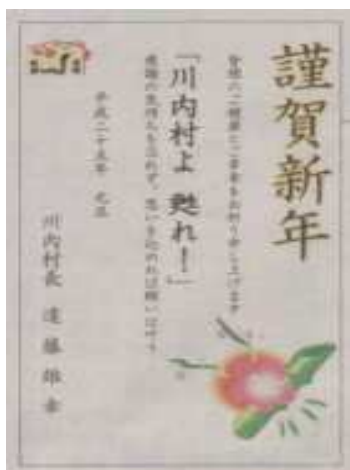 謹賀新年
皆様のご健康とご多幸をお祈り申し上げます
「川内村よ 甦れ！」
感謝の気持ちを忘れず、思いを込めれば願いは叶う
平成二十五年 元旦
川内村長 遠藤雄幸